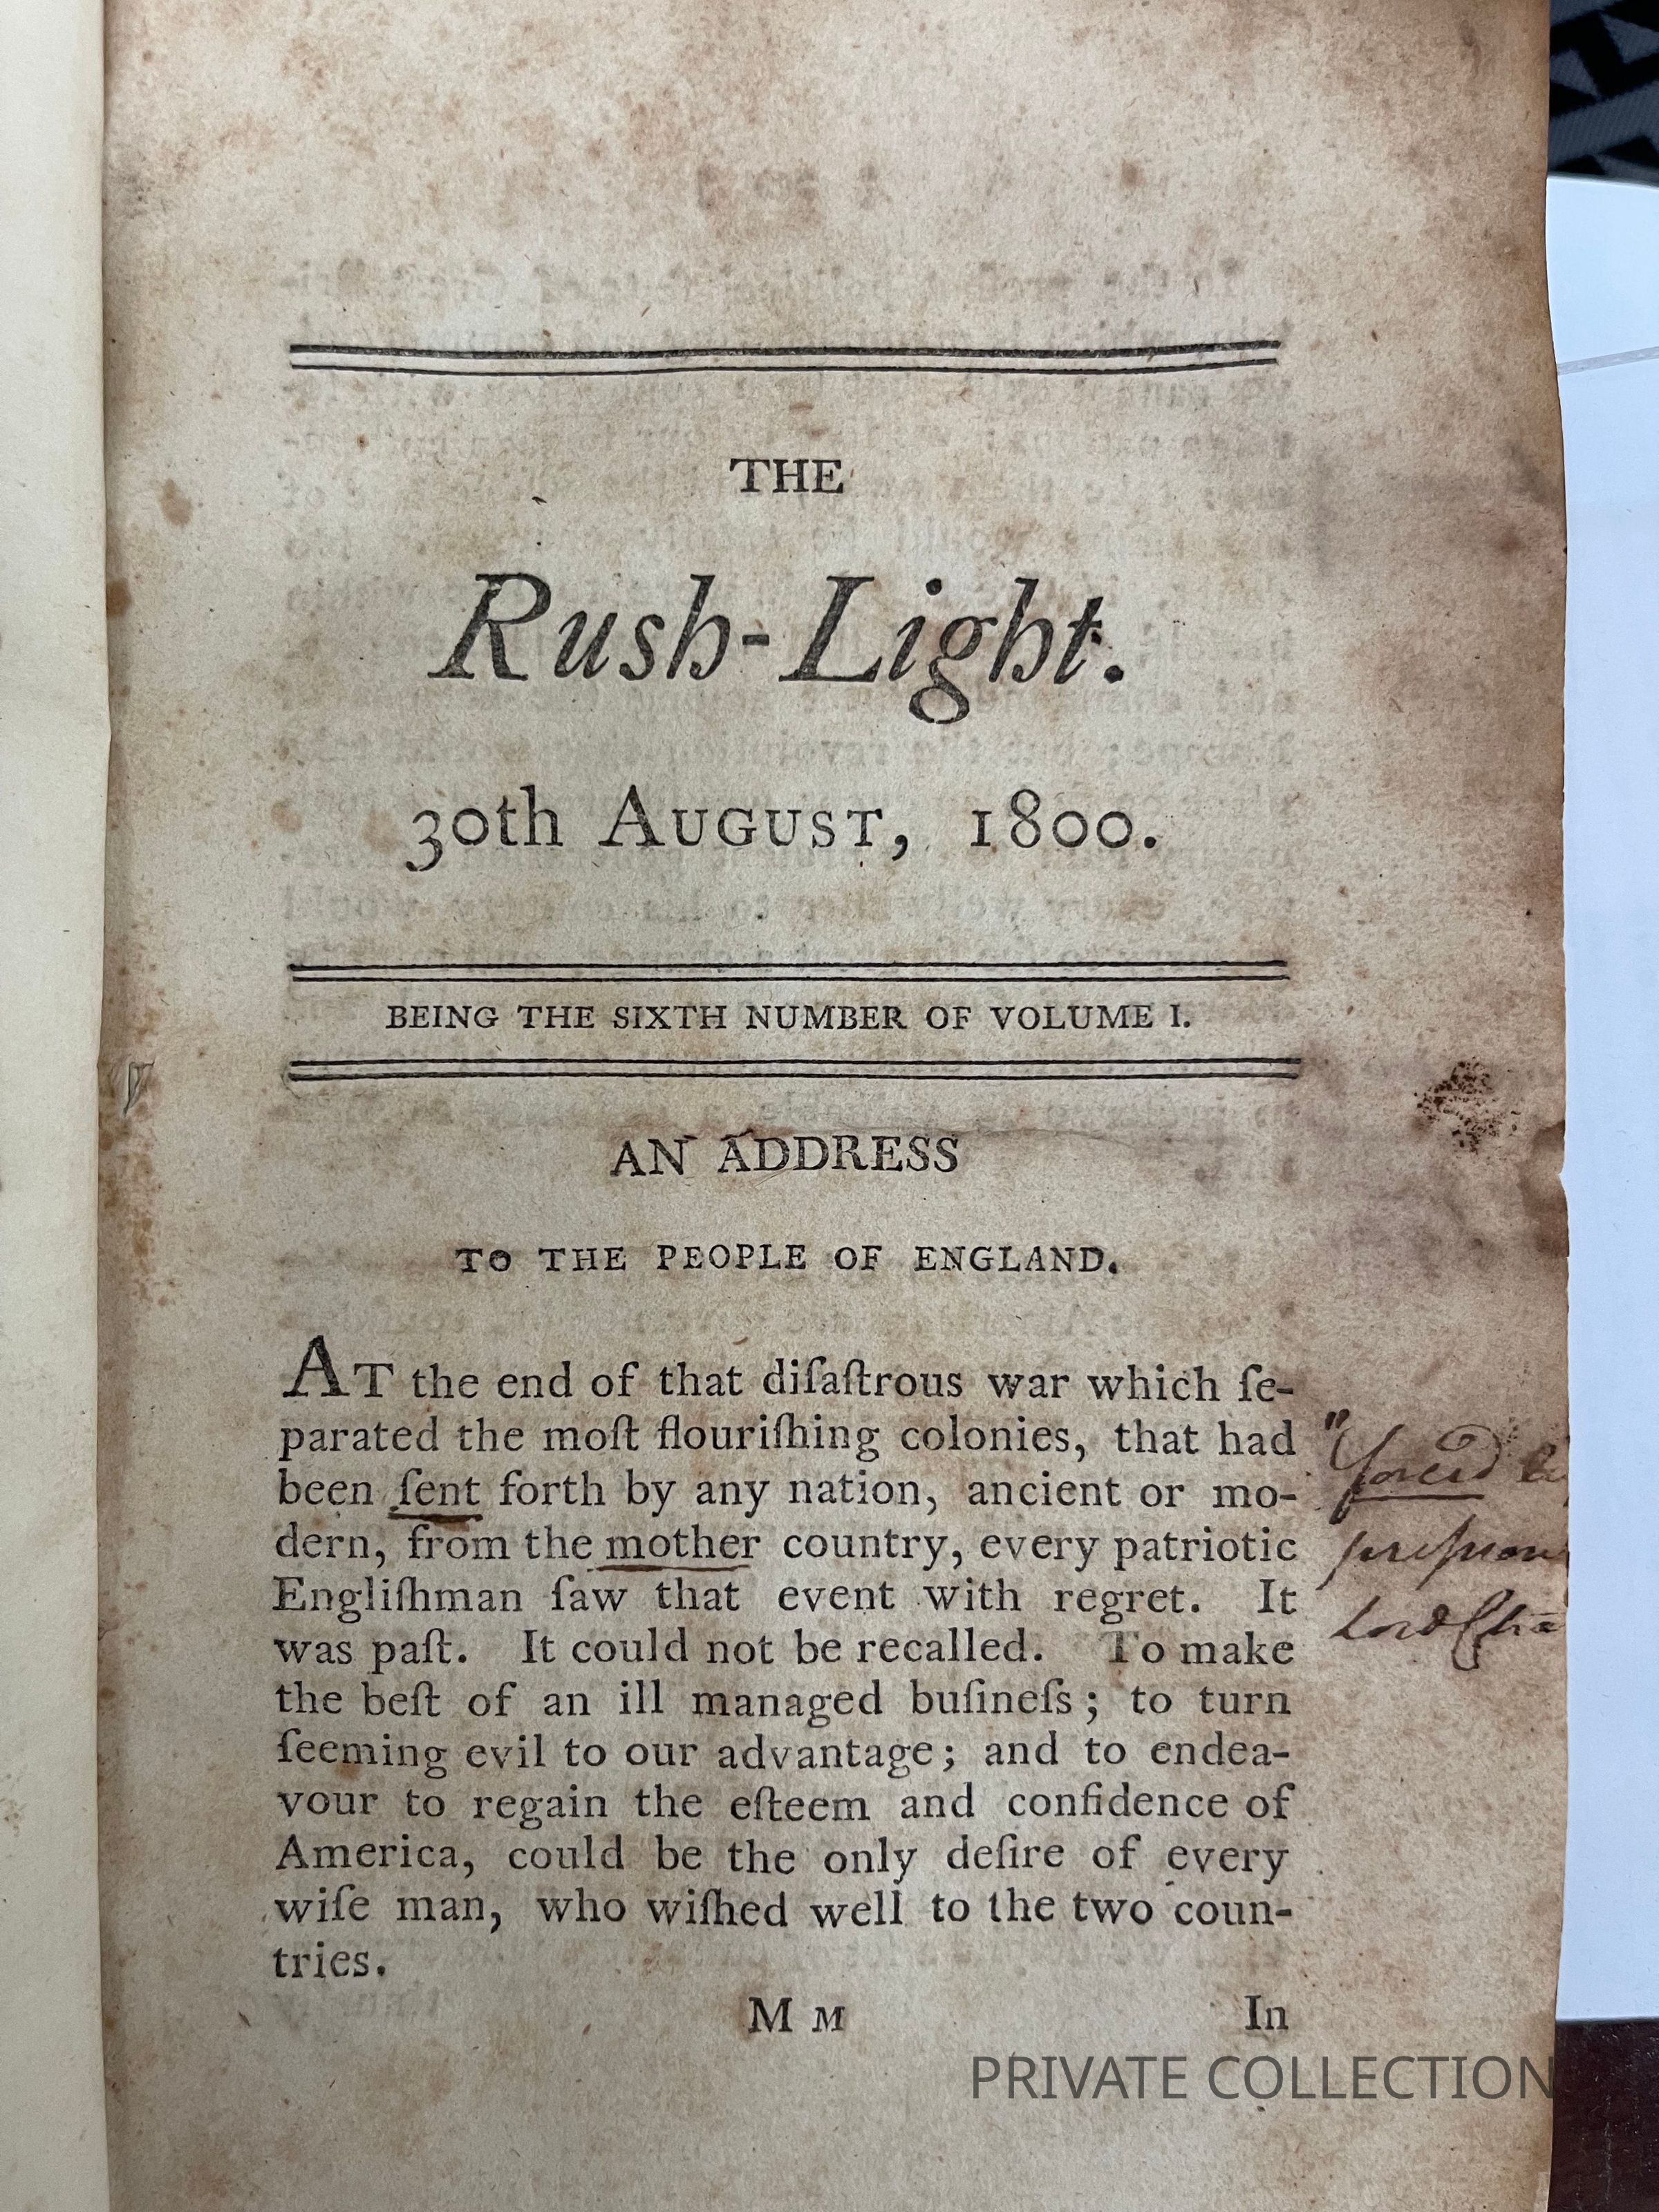 THE
Rush-Light.
30th AUGUST, 1800.
BEING THE SIXTH NUMBER OF VOLUME I.
AN ADDRESS
TO THE PEOPLE OF ENGLAND.
AT the end of that diſaſtrous war which ſe-
parated the moſt flouriſhing colonies, that had
been ſent forth by any nation, ancient or mo-
dern, from the mother country, every patriotic
Engliſhman ſaw that event with regret. It
was paſt. It could not be recalled. To make
the beſt of an ill managed buſineſs; to turn
ſeeming evil to our advantage; and to endea-
vour to regain the eſteem and confidence of
America, could be the only deſire of every
wiſe man, who wiſhed well to the two coun-
tries.
M M In
"forced
Lord
PRIVATE COLLECTION